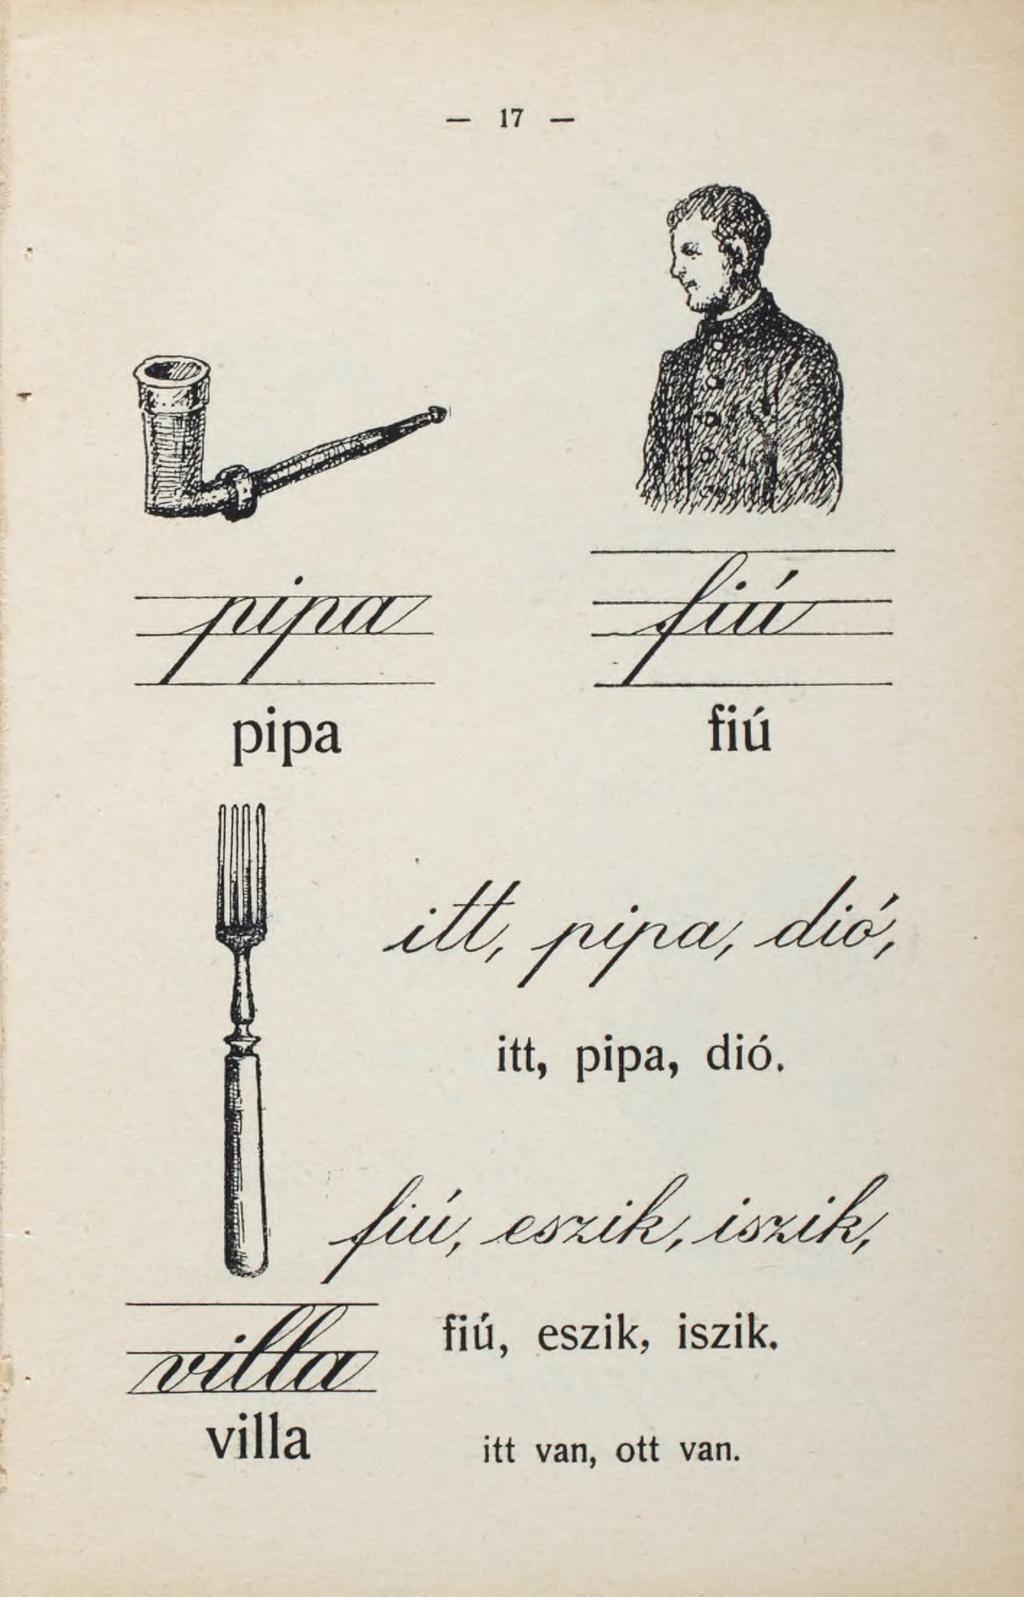 — 17 —
pipa
fiú
pipa
fiú
itt, pipa, dió,
itt, pipa, dió.
fiú, eszik, iszik,
fiú, eszik, iszik.
villa
villa
itt van, ott van.